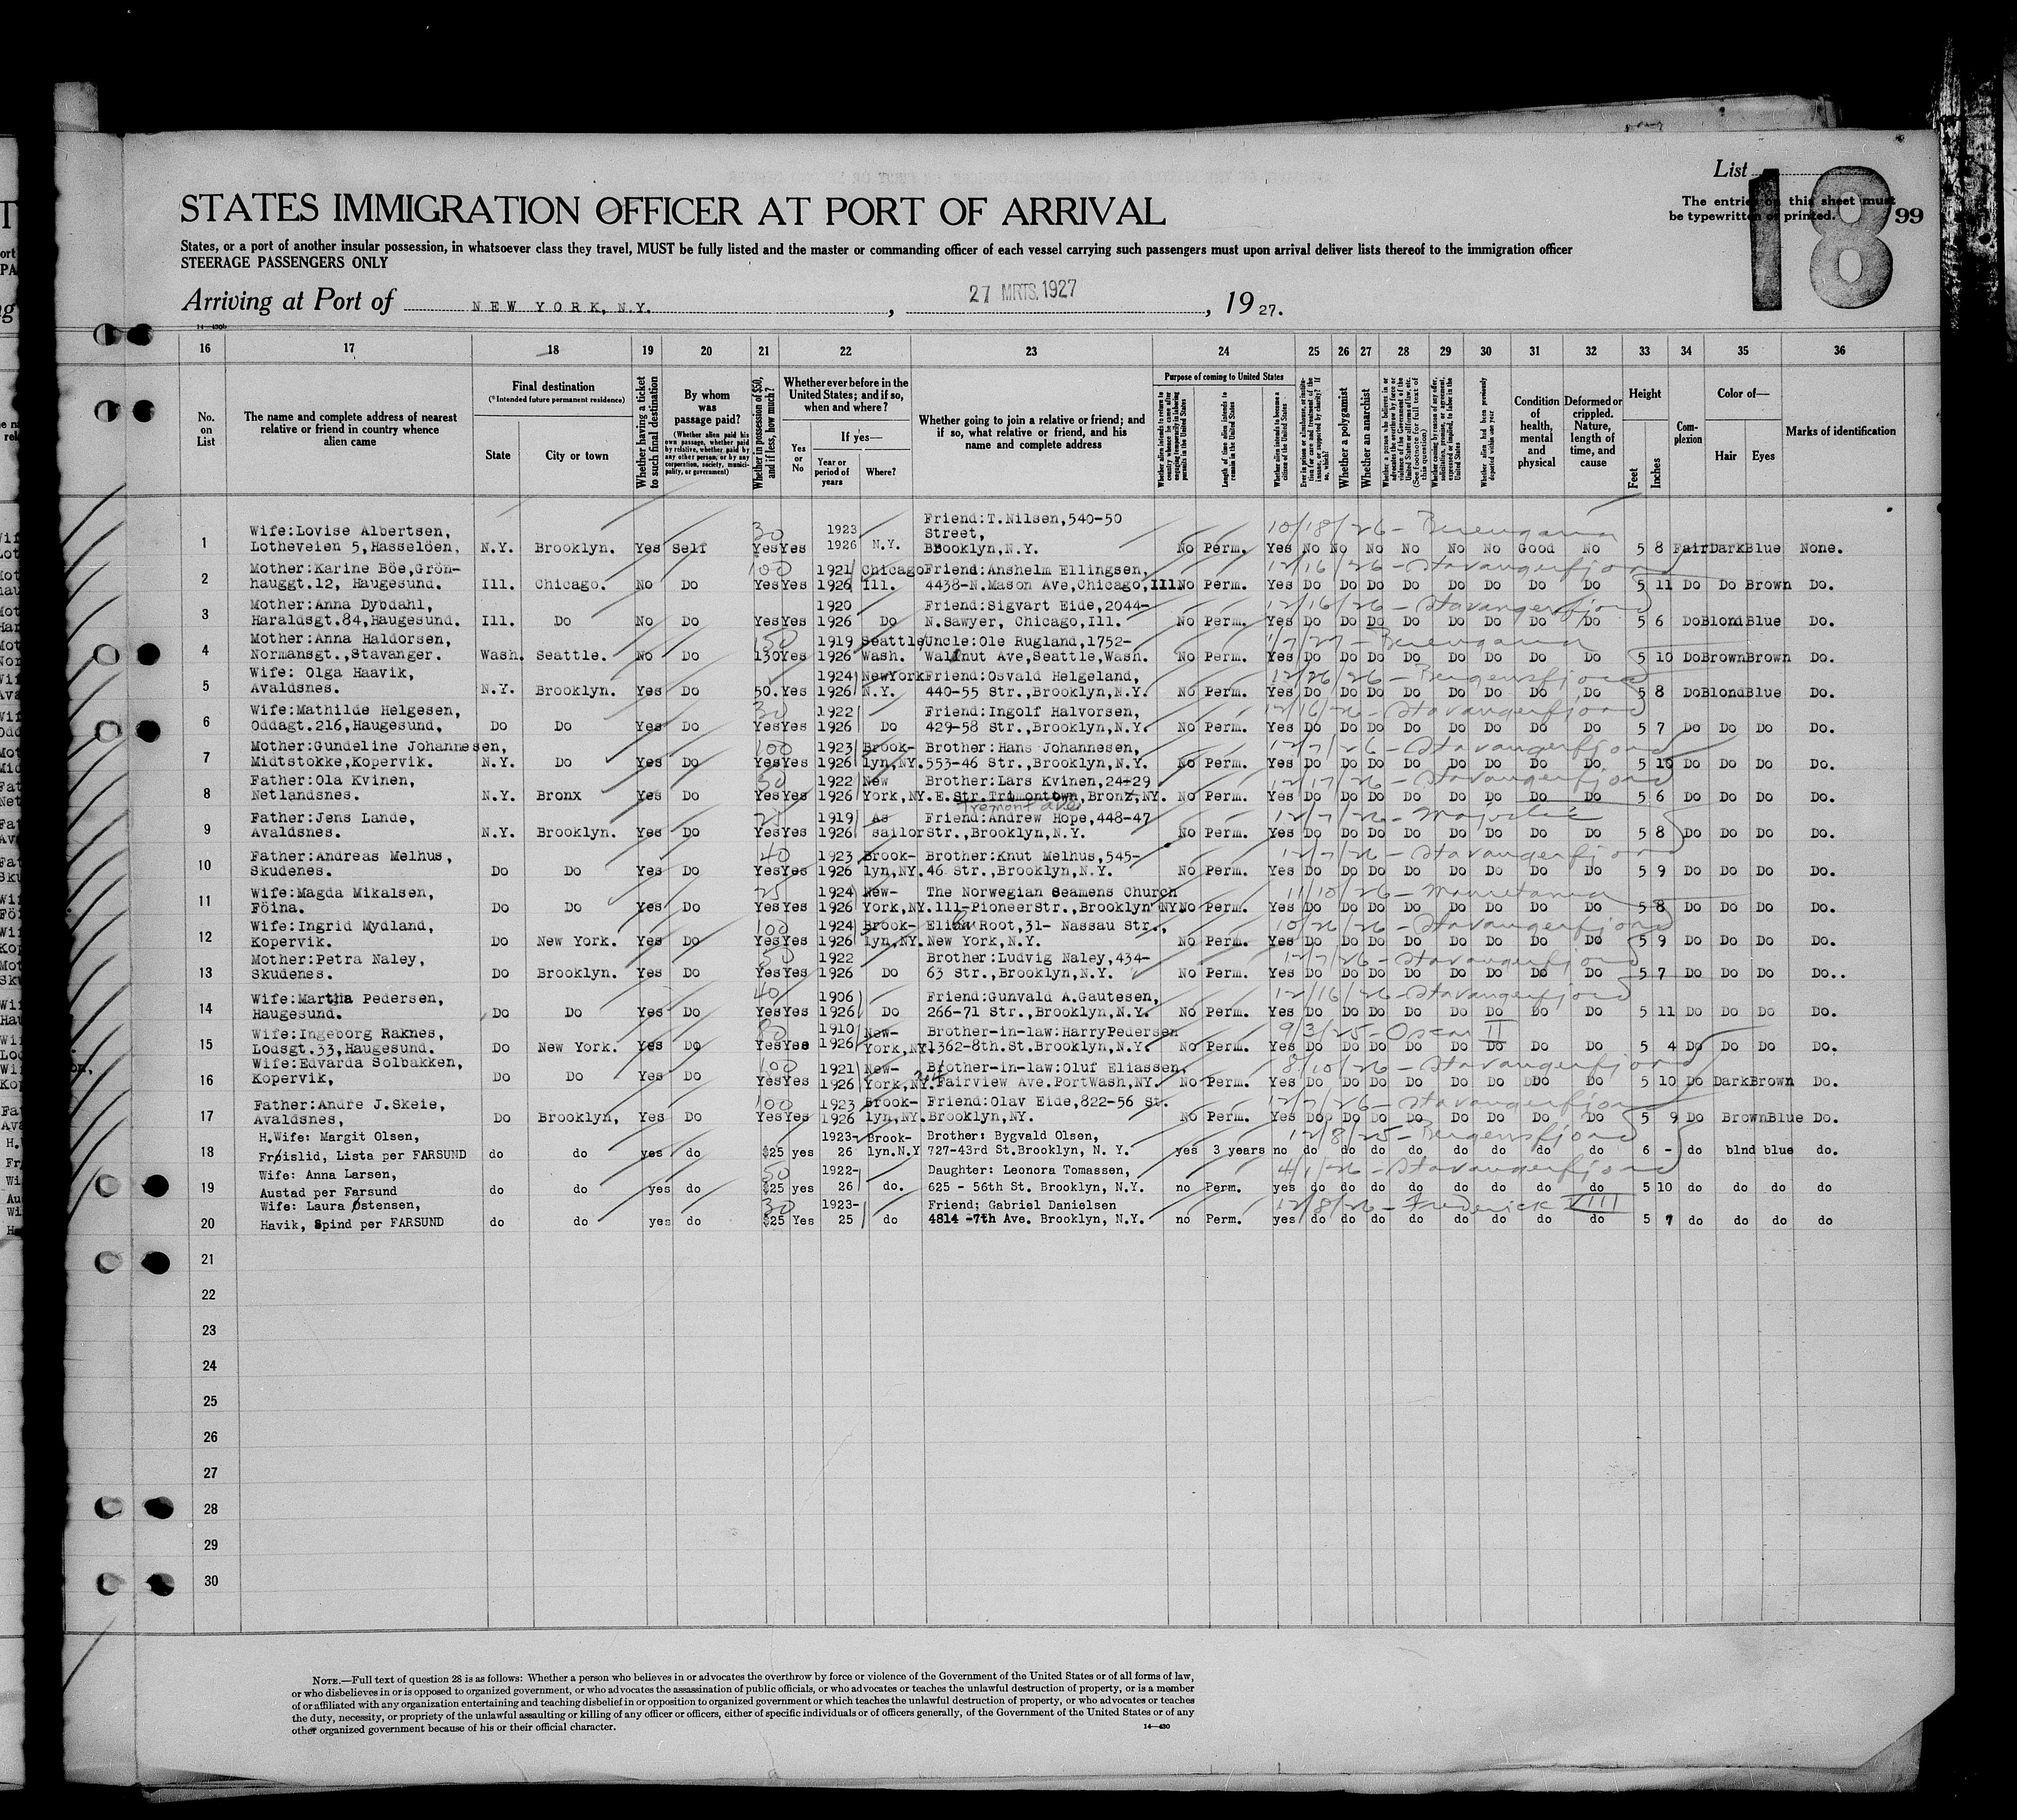 List 18
The entries on this sheet must
be typewritten or printed.
99
STATES IMMIGRATION OFFICER AT PORT OF ARRIVAL
States, or a port of another insular possession, in whatsoever class they travel, MUST be fully listed and the master or commanding officer of each vessel carrying such passengers must upon arrival deliver lists thereof to the immigration officer
STEERAGE PASSENGERS ONLY
Arriving at Port of NEW YORK, N.Y. , 27 MRTS. 1927 , 19 27.
14—430b
16 17 18 19 20 21 22 23 24 25 26 27 28 29 30 31 32 33 34 35 36
No. on List
The name and complete address of nearest relative or friend in country whence alien came
Final destination
(*Intended future permanent residence)
State
City or town
Whether having a ticket to such final destination
By whom was passage paid?
(Whether alien paid his own passage, whether paid by relative, whether paid by any other person, or by any corporation, society, municipality, or government)
Whether in possession of $50, and if less, how much?
Whether ever before in the United States; and if so, when and where?
Yes or No
If yes—
Year or period of years
Where?
Whether going to join a relative or friend; and if so, what relative or friend, and his name and complete address
Purpose of coming to United States
Length of time alien intends to remain in the United States
Whether alien intends to become a citizen of the United States
Whether a polygamist
Whether an anarchist
Whether alien had been previously deported within one year
Condition of health, mental and physical
Deformed or crippled. Nature, length of time, and cause
Height
Feet
Inches
Complexion
Color of—
Hair
Eyes
Marks of identification
Friend:T.Nilsen,540-50
Wife:Lovise Albertsen, 30 1923 Street, 10/18/26 - Berengaria
1 Lotheveien 5,Hasselöen, N.Y. Brooklyn. Yes Self Yes Yes 1926 N.Y. Brooklyn,N.Y. No Perm. Yes No No No No No No Good No 5 8 Fair Dark Blue None.
Mother:Karine Böe,Grön- 100 1921 Chicago Friend:Anshelm Ellingsen, 12/16/26 - Stavangerfjord
2 hauggt.12, Haugesund. Ill. Chicago. No Do Yes Yes 1926 Ill. 4438-N.Mason Ave,Chicago,Ill No Perm. Yes Do Do Do Do Do Do Do Do 5 11 Do Do Brown Do.
Mother:Anna Dybdahl, 1920 Friend:Sigvart Eide,2044- 12/16/26 - Stavangerfjord
3 Haraldsgt.84,Haugesund. Ill. Do No Do Yes Yes 1926 Do N.Sawyer, Chicago,Ill. No Perm. Yes Do Do Do Do Do Do Do Do 5 6 Do Blond Blue Do.
Mother:Anna Haldorsen, 150 1919 Seattle Uncle:Ole Rugland,1752- 1/7/27 - Berengaria
4 Normansgt.,Stavanger. Wash. Seattle. No Do 130 Yes 1926 Wash. Walnut Ave,Seattle,Wash. No Perm. Yes Do Do Do Do Do Do Do Do 5 10 Do Brown Brown Do.
Wife: Olga Haavik, 1924 NewYork Friend:Osvald Helgeland, 12/26/26 - Bergensfjord
5 Avaldsnes. N.Y. Brooklyn. Yes Do 50. Yes 1926 N.Y. 440-55 Str.,Brooklyn,N.Y. No Perm. Yes Do Do Do Do Do Do Do Do 5 8 Do Blond Blue Do.
Wife:Mathilde Helgesen, 30 1922 Friend:Ingolf Halvorsen, 12/16/26 - Stavangerfjord
6 Oddagt.216,Haugesund, Do Do Yes Do Yes Yes 1926 Do 429-58 Str.,Brooklyn,N.Y. No Perm. Yes Do Do Do Do Do Do Do Do 5 7 Do Do Do Do.
Mother:Gundeline Johannesen, 100 1923 Brook- Brother:Hans Johannesen, 12/7/26 - Stavangerfjord
7 Midtstokke,Kopervik. N.Y. Do Yes Do Yes Yes 1926 lyn,NY. 553-46 Str.,Brooklyn,N.Y. No Perm. Yes Do Do Do Do Do Do Do Do 5 10 Do Do Do Do.
Father:Ola Kvinen, 50 1922 New Brother:Lars Kvinen,24-29 12/17/26 - Stavangerfjord
8 Netlandsnes. N.Y. Bronx Yes Do Yes Yes 1926 York,NY. E.Str.Trimontown,Bronz,NY. No Perm. Yes Do Do Do Do Do Do Do Do 5 6 Do Do Do Do.
Tremont Ave
Father:Jens Lande, 25 1919 As Friend:Andrew Hope,448-47 12/7/26 - Majestic
9 Avaldsnes. N.Y. Brooklyn. Yes Do Yes Yes 1926 sailor Str.,Brooklyn,N.Y. No Perm. Yes Do Do Do Do Do Do Do Do 5 8 Do Do Do Do.
Father:Andreas Melhus, 40 1923 Brook- Brother:Knut Melhus,545- 12/7/26 - Stavangerfjord
10 Skudenes. Do Do Yes Do Yes Yes 1926 lyn,NY. 46 Str.,Brooklyn,N.Y. No Perm. Yes Do Do Do Do Do Do Do Do 5 9 Do Do Do Do.
Wife:Magda Mikalsen, 25 1924 New- The Norwegian Seamens Church 11/10/26 - Mauretania
11 Föina. Do Do Yes Do Yes Yes 1926 York,NY. 111-PioneerStr.,Brooklyn NY No Perm. Yes Do Do Do Do Do Do Do Do 5 8 Do Do Do Do.
Wife:Ingrid Mydland, 100 1924 Brook- Root,31- Nassau Str., 10/26/26 - Stavangerfjord
12 Kopervik. Do New York. Yes Do Yes Yes 1926 lyn,NY. New York,N.Y. No Perm. Yes Do Do Do Do Do Do Do Do 5 9 Do Do Do Do.
Mother:Petra Naley, 50 1922 Brother:Ludvig Naley,434- 12/7/26 - Stavangerfjord
13 Skudenes. Do Brooklyn. Yes Do Yes Yes 1926 Do 63 Str.,Brooklyn,N.Y. No Perm. Yes Do Do Do Do Do Do Do Do 5 7 Do Do Do Do..
Wife:Martha Pedersen, 40 1906 Friend:Gunvald A.Gautesen, 12/16/26 - Stavangerfjord
14 Haugesund. Do Do Yes Do Yes Yes 1926 Do 266-71 Str.,Brooklyn,N.Y. No Perm. Yes Do Do Do Do Do Do Do Do 5 11 Do Do Do Do.
Wife:Ingeborg Raknes, 1910 New- Brother-in-law:HarryPedersen 9/3/25 - Oscar II
15 Lodsgt.33,Haugesund. Do New York. Yes Do Yes Yes 1926 York,NY. 1362-8th.St.Brooklyn,N.Y. No Perm. Yes Do Do Do Do Do Do Do Do 5 4 Do Do Do Do.
Wife:Edvarda Solbakken, 100 1921 New- Brother-in-law:Oluf Eliassen, 8/10/26 - Stavangerfjord
16 Kopervik, Do Do Yes Do Yes Yes 1926 York,NY. Fairview Ave.PortWash,NY. No Perm. Yes Do Do Do Do Do Do Do Do 5 10 Do Dark Brown Do.
Father:Andre J.Skeie, 100 1923 Brook- Friend:Olav Eide,822-56 St. 12/7/26 - Stavangerfjord
17 Avaldsnes, Do Brooklyn, Yes Do Yes Yes 1926 lyn,NY. Brooklyn,NY. No Perm. Yes Do Do Do Do Do Do Do Do 5 9 Do Brown Blue Do.
H.Wife: Margit Olsen, 1923- Brook- Brother: Bygvald Olsen, 12/8/25 - Bergensfjord
18 Frøislid, Lista per FARSUND do do yes do $25 yes 26 lyn.N.Y 727-43rd St.Brooklyn, N. Y. yes 3 years no do do do do do do do do 6 - do blnd blue do.
Wife: Anna Larsen, 50 1922- Daughter: Leonora Tomassen, 4/1/26 - Stavangerfjord
19 Austad per Farsund do do yes do $25 yes 26 do. 625 - 56th St. Brooklyn, N.Y. no Perm. yes do do do do do do do do 5 10 do do do do
Wife: Laura Østensen, 30 1923- Friend; Gabriel Danielsen 12/8/26 - Frederick VIII
20 Havik, Spind per FARSUND do do yes do $25 Yes 25 do 4814 -7th Ave. Brooklyn, N.Y. no Perm. yes do do do do do do do do 5 7 do do do do
21
22
23
24
25
26
27
28
29
30
NOTE.—Full text of question 28 is as follows: Whether a person who believes in or advocates the overthrow by force or violence of the Government of the United States or of all forms of law,
or who disbelieves in or is opposed to organized government, or who advocates the assassination of public officials, or who advocates or teaches the unlawful destruction of property, or is a member
of or affiliated with any organization entertaining and teaching disbelief in or opposition to organized government or which teaches the unlawful destruction of property, or who advocates or teaches
the duty, necessity, or propriety of the unlawful assaulting or killing of any officer or officers, either of specific individuals or of officers generally, of the Government of the United States or of any
other organized government because of his or their official character.
14—430